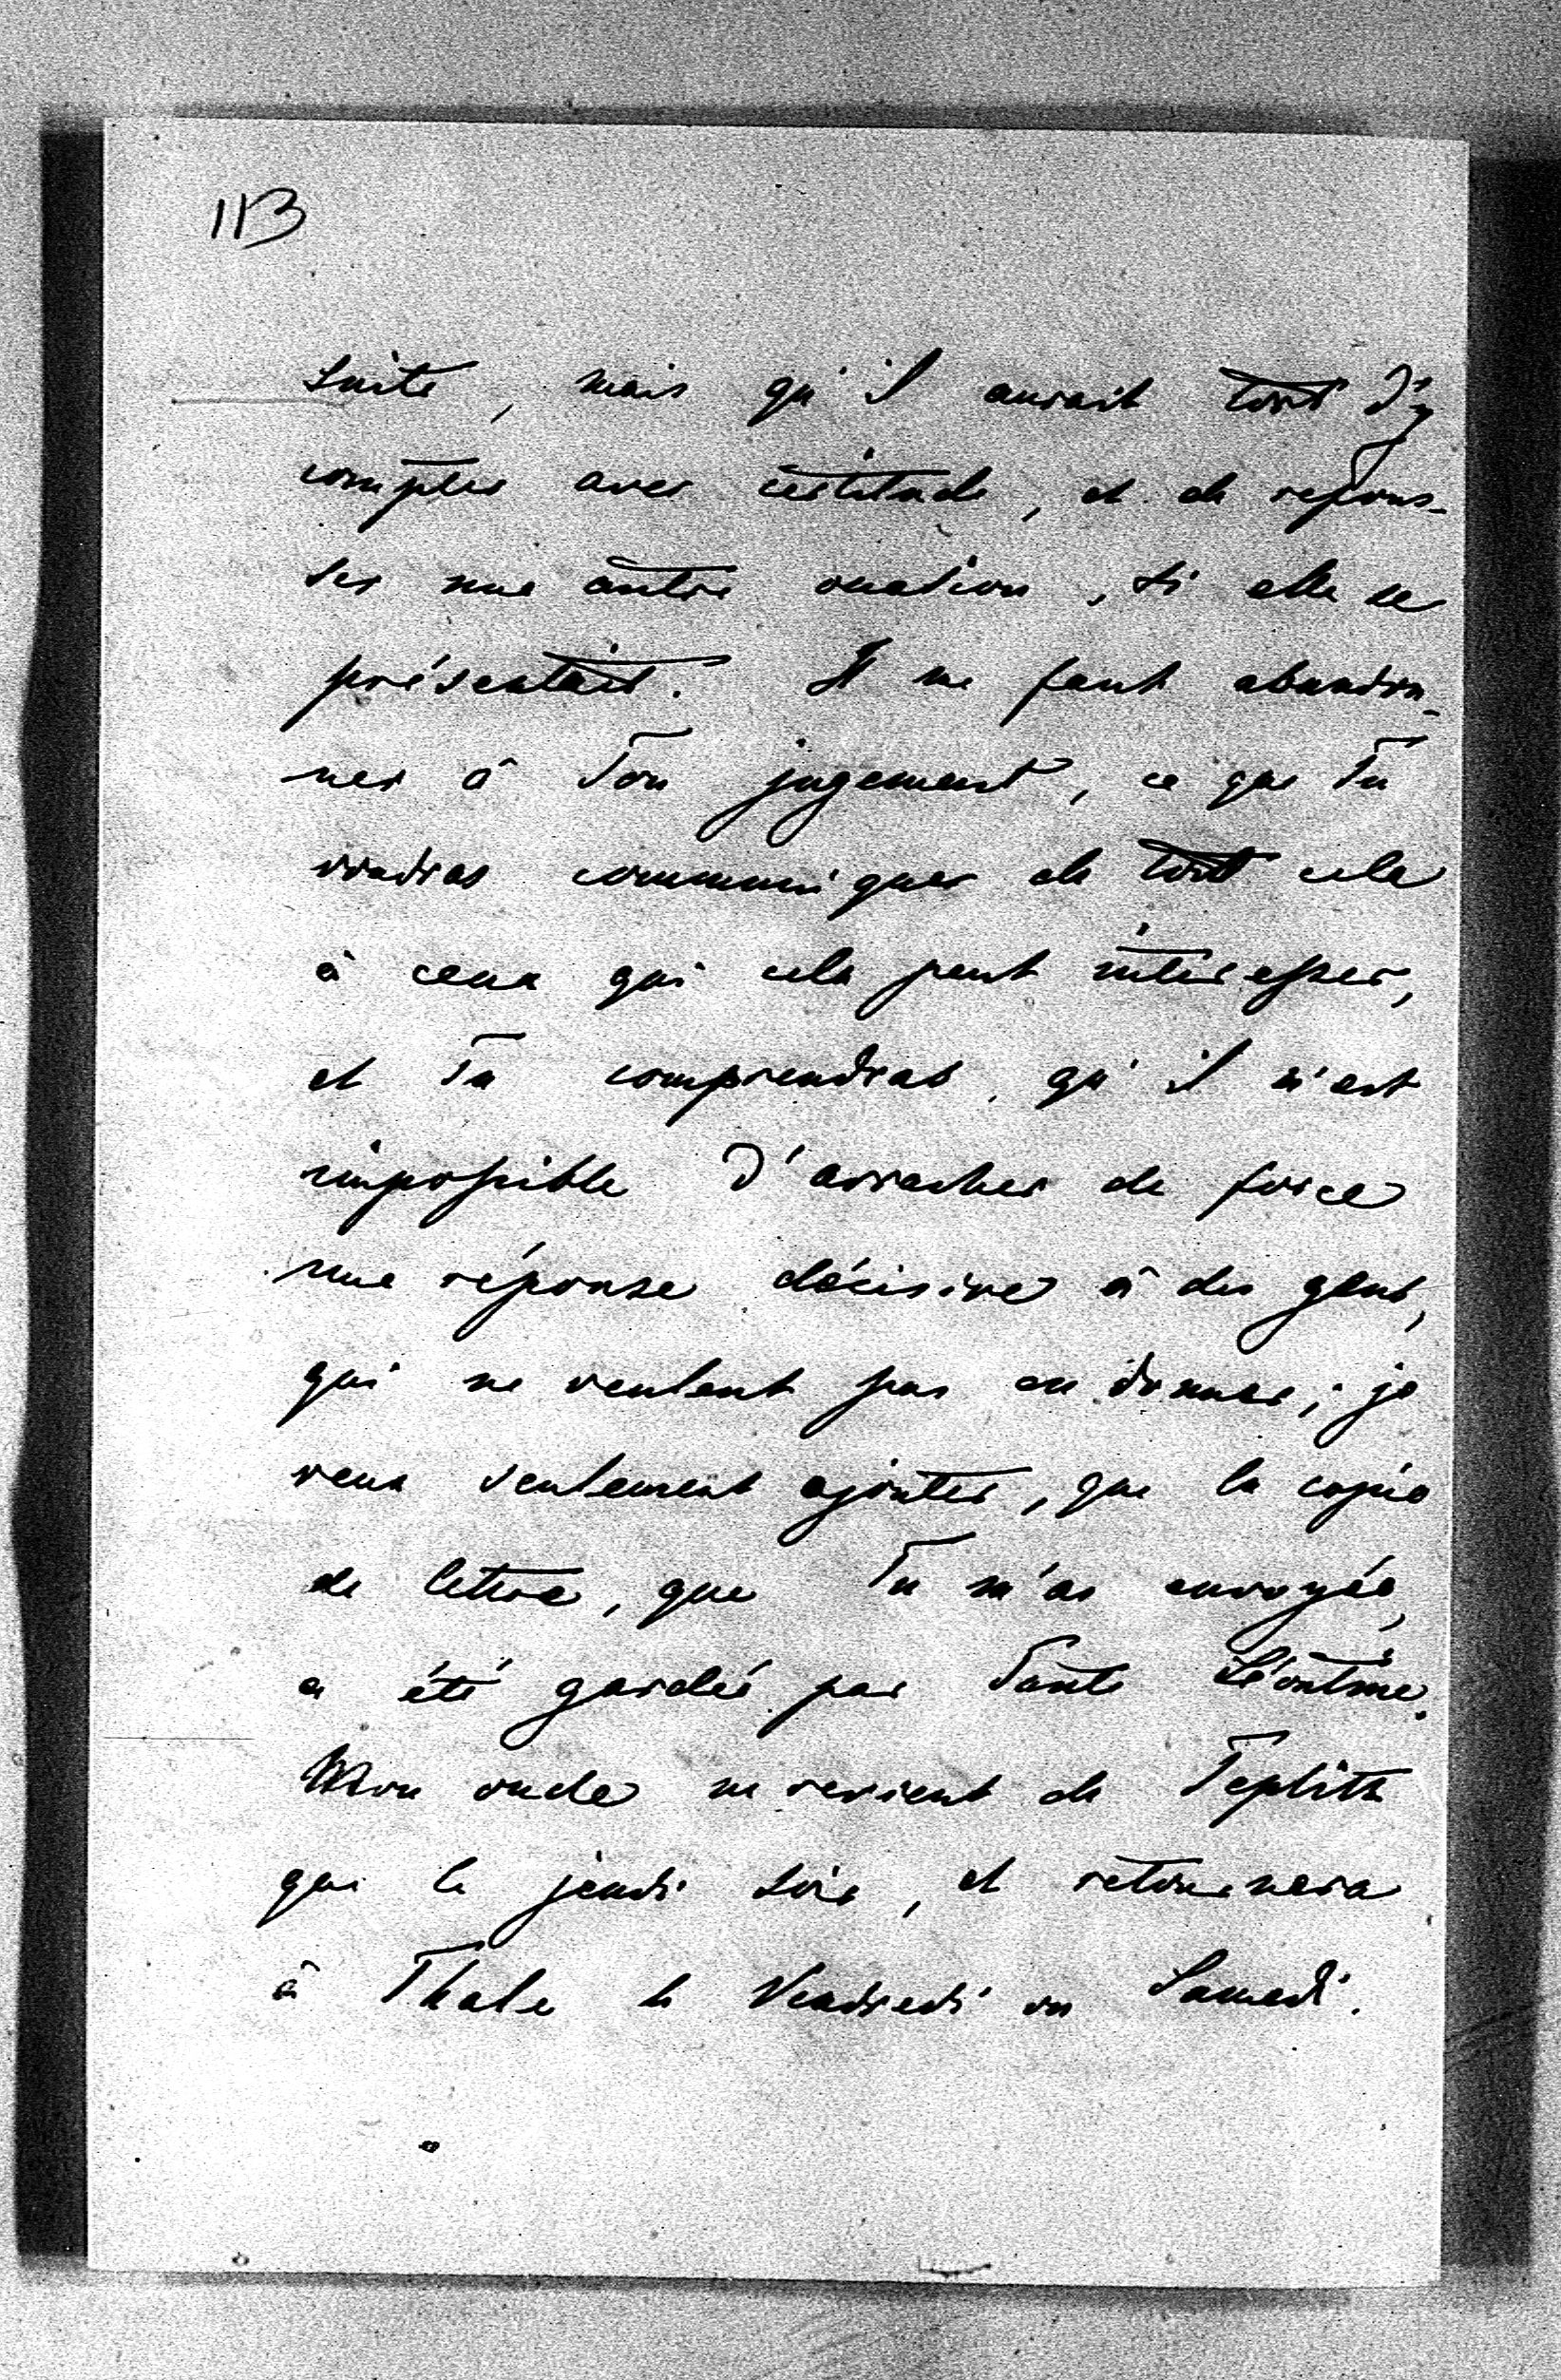 113
suite, mais qu'il aurait tort d'y
compter avec certitude, et de repous-
ser une autre ocasion, si elle se
présentait. Il me faut abandon-
ner à Ton jugement, ce que Tu
voudras communiquer de tout cela
à ceux qui cela peut intéresser,
et Tu comprendras, qu'il m'est
impossible d'arracher de force
une réponse décisive à des gens,
qui ne veulent pas en donner; je
veux seulement ajouter, que la copie
de lettre, que Tu m'as envoyée,
a été gardée par Tante Léontine.
Mon oncle ne revient de Teplitz
que le jeudi soir, et retournera
à Thale le Vendredi ou Samedi.